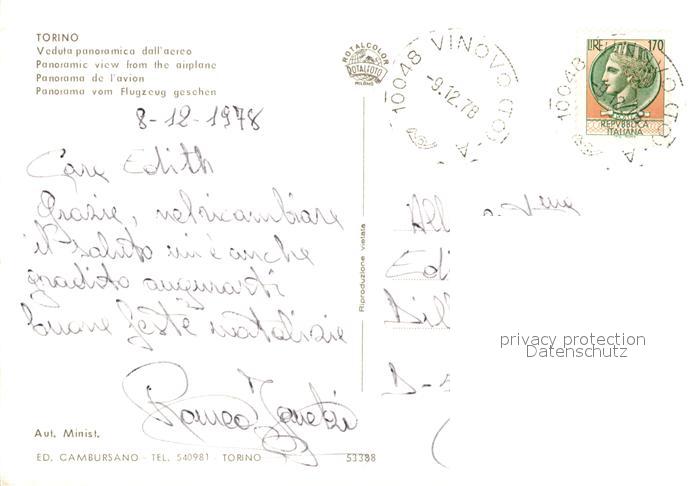 TORINO
Veduta panoramica dall'aereo
Panoramic view from the airplane
Panorama de l'avion
Panorama vom Flugzeug geschen
ROTALCOLOR
ROTALFOTO
MILANO
10048 VINOVO (TO) - A
-9.12.78
LIRE 170
REPVBBLICA
ITALIANA
10048 VINOVO (TO) - A
8-12-1978
Cara Edith
Grazie, nel ricambiare
il saluto mi è anche
gradito augurarti
buone feste natalizie
Romeo
All
Edi
Dil
D-
Riproduzione vietata
privacy protection
Datenschutz
Aut. Minist.
ED. CAMBURSANO - TEL. 540981 - TORINO
53388